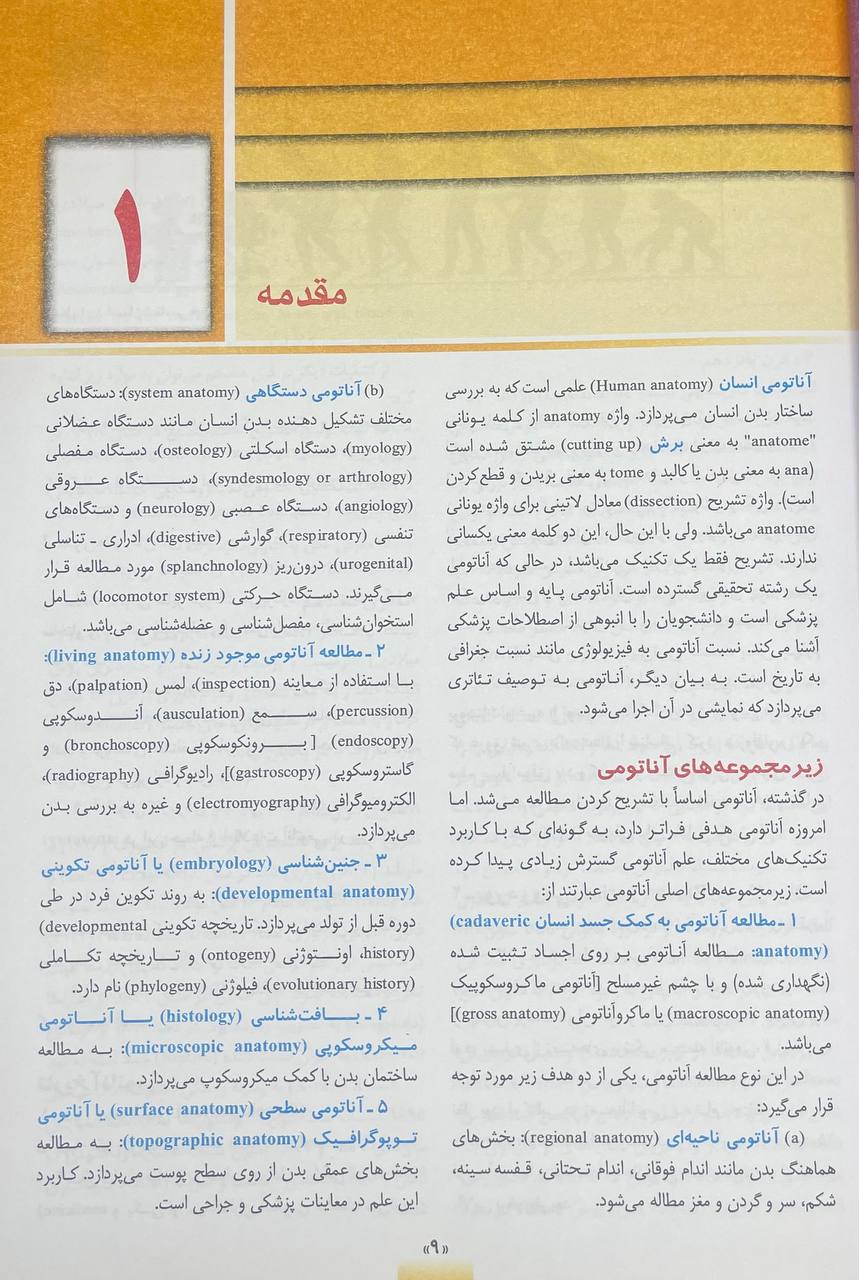 ۱
مقدمه
آناتومی انسان (Human anatomy) علمی است که به بررسی
ساختار بدن انسان می‌پردازد. واژه anatomy از کلمه یونانی
"anatome" به معنی برش (cutting up) مشتق شده است
(ana به معنی بدن یا کالبد و tome به معنی بریدن و قطع کردن
است). واژه تشریح (dissection) معادل لاتینی برای واژه یونانی
anatome می‌باشد. ولی با این حال، این دو کلمه معنی یکسانی
ندارند. تشریح فقط یک تکنیک می‌باشد، در حالی که آناتومی
یک رشته تحقیقی گسترده است. آناتومی پایه و اساس علم
پزشکی است و دانشجویان را با انبوهی از اصطلاحات پزشکی
آشنا می‌کند. نسبت آناتومی به فیزیولوژی مانند نسبت جغرافی
به تاریخ است. به بیان دیگر، آناتومی به توصیف تئاتری
می‌پردازد که نمایشی در آن اجرا می‌شود.
زیرمجموعه‌های آناتومی
در گذشته، آناتومی اساساً با تشریح کردن مطالعه می‌شد. اما
امروزه آناتومی هدفی فراتر دارد، به گونه‌ای که با کاربرد
تکنیک‌های مختلف، علم آناتومی گسترش زیادی پیدا کرده
است. زیرمجموعه‌های اصلی آناتومی عبارتند از:
۱ ـ مطالعه آناتومی به کمک جسد انسان (cadaveric
anatomy): مطالعه آناتومی بر روی اجساد تثبیت شده
(نگهداری شده) و با چشم غیرمسلح [آناتومی ماکروسکوپیک
(macroscopic anatomy) یا ماکروآناتومی (gross anatomy)]
می‌باشد.
در این نوع مطالعه آناتومی، یکی از دو هدف زیر مورد توجه
قرار می‌گیرد:
(a) آناتومی ناحیه‌ای (regional anatomy): بخش‌های
هماهنگ بدن مانند اندام فوقانی، اندام تحتانی، قفسه سینه،
شکم، سر و گردن و مغز مطاله می‌شود.
(b) آناتومی دستگاهی (system anatomy): دستگاه‌های
مختلف تشکیل دهنده بدن انسان مانند دستگاه عضلانی
(myology)، دستگاه اسکلتی (osteology)، دستگاه مفصلی
(syndesmology or arthrology)، دستگاه عروقی
(angiology)، دستگاه عصبی (neurology) و دستگاه‌های
تنفسی (respiratory)، گوارشی (digestive)، ادراری ـ تناسلی
(urogenital)، درون‌ریز (splanchnology) مورد مطالعه قرار
می‌گیرند. دستگاه حرکتی (locomotor system) شامل
استخوان‌شناسی، مفصل‌شناسی و عضله‌شناسی می‌باشد.
۲ ـ مطالعه آناتومی موجود زنده (living anatomy):
با استفاده از معاینه (inspection)، لمس (palpation)، دق
(percussion)، سمع (ausculation)، آندوسکوپی
(endoscopy) [برونکوسکوپی (bronchoscopy) و
گاستروسکوپی (gastroscopy)]، رادیوگرافی (radiography)،
الکترومیوگرافی (electromyography) و غیره به بررسی بدن
می‌پردازد.
۳ ـ جنین‌شناسی (embryology) یا آناتومی تکوینی
(developmental anatomy): به روند تکوین فرد در طی
دوره قبل از تولد می‌پردازد. تاریخچه تکوینی (developmental
history)، اونتوژنی (ontogeny) و تاریخچه تکاملی
(evolutionary history)، فیلوژنی (phylogeny) نام دارد.
۴ ـ بافت‌شناسی (histology) یا آناتومی
میکروسکوپی (microscopic anatomy): به مطالعه
ساختمان بدن با کمک میکروسکوپ می‌پردازد.
۵ ـ آناتومی سطحی (surface anatomy) یا آناتومی
توپوگرافیک (topographic anatomy): به مطالعه
بخش‌های عمقی بدن از روی سطح پوست می‌پردازد. کاربرد
این علم در معاینات پزشکی و جراحی است.
«۹»